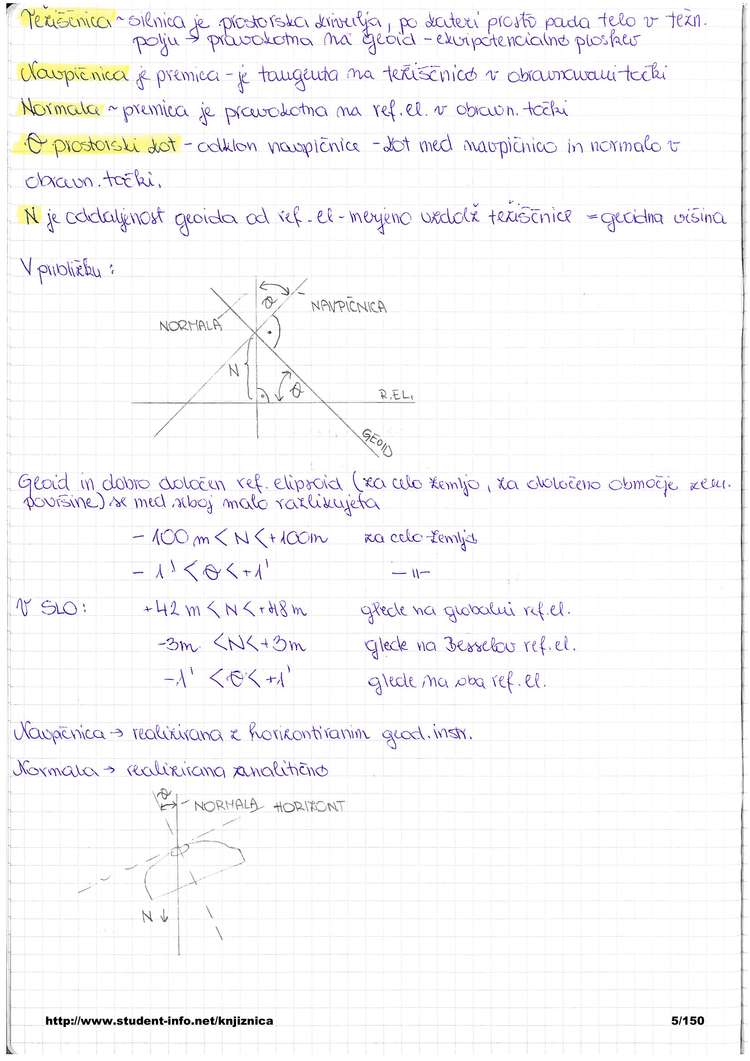 Težiščnica ~ silnica je prostorska krivulja, po kateri prosto pada telo v težn.
polju → pravokotna na geoid - ekvipotencialno ploskev
Navpičnica je premica - je tangenta na težiščnico v obravnavani točki
Normala ~ premica je pravokotna na ref. el. v obravn. točki
Θ prostorski kot - odklon navpičnice - kot med navpičnico in normalo v
obravn. točki.
N je oddaljenost geoida od ref. el - merjeno vzdolž težiščnice = geoidna višina
V približku:
Θ
NAVPIČNICA
NORMALA
N
Θ
R.EL.
GEOID
Geoid in dobro določen ref. elipsoid (za celo zemljo, za določeno območje zem.
površine) se med seboj malo razlikujeta
- 100 m < N < + 100m za celo zemljo
- 1' < Θ < +1' -11-
V SLO: +42 m < N < +48 m glede na globalni ref. el.
-3m < N < +3m glede na Besselov ref. el.
-1' < Θ < +1' glede na oba ref. el.
Navpičnica → realizirana z horizontiranim geod. instr.
Normala → realizirana analitično
Θ
NORMALA HORIZONT
N ↓
http://www.student-info.net/knjiznica 5/150